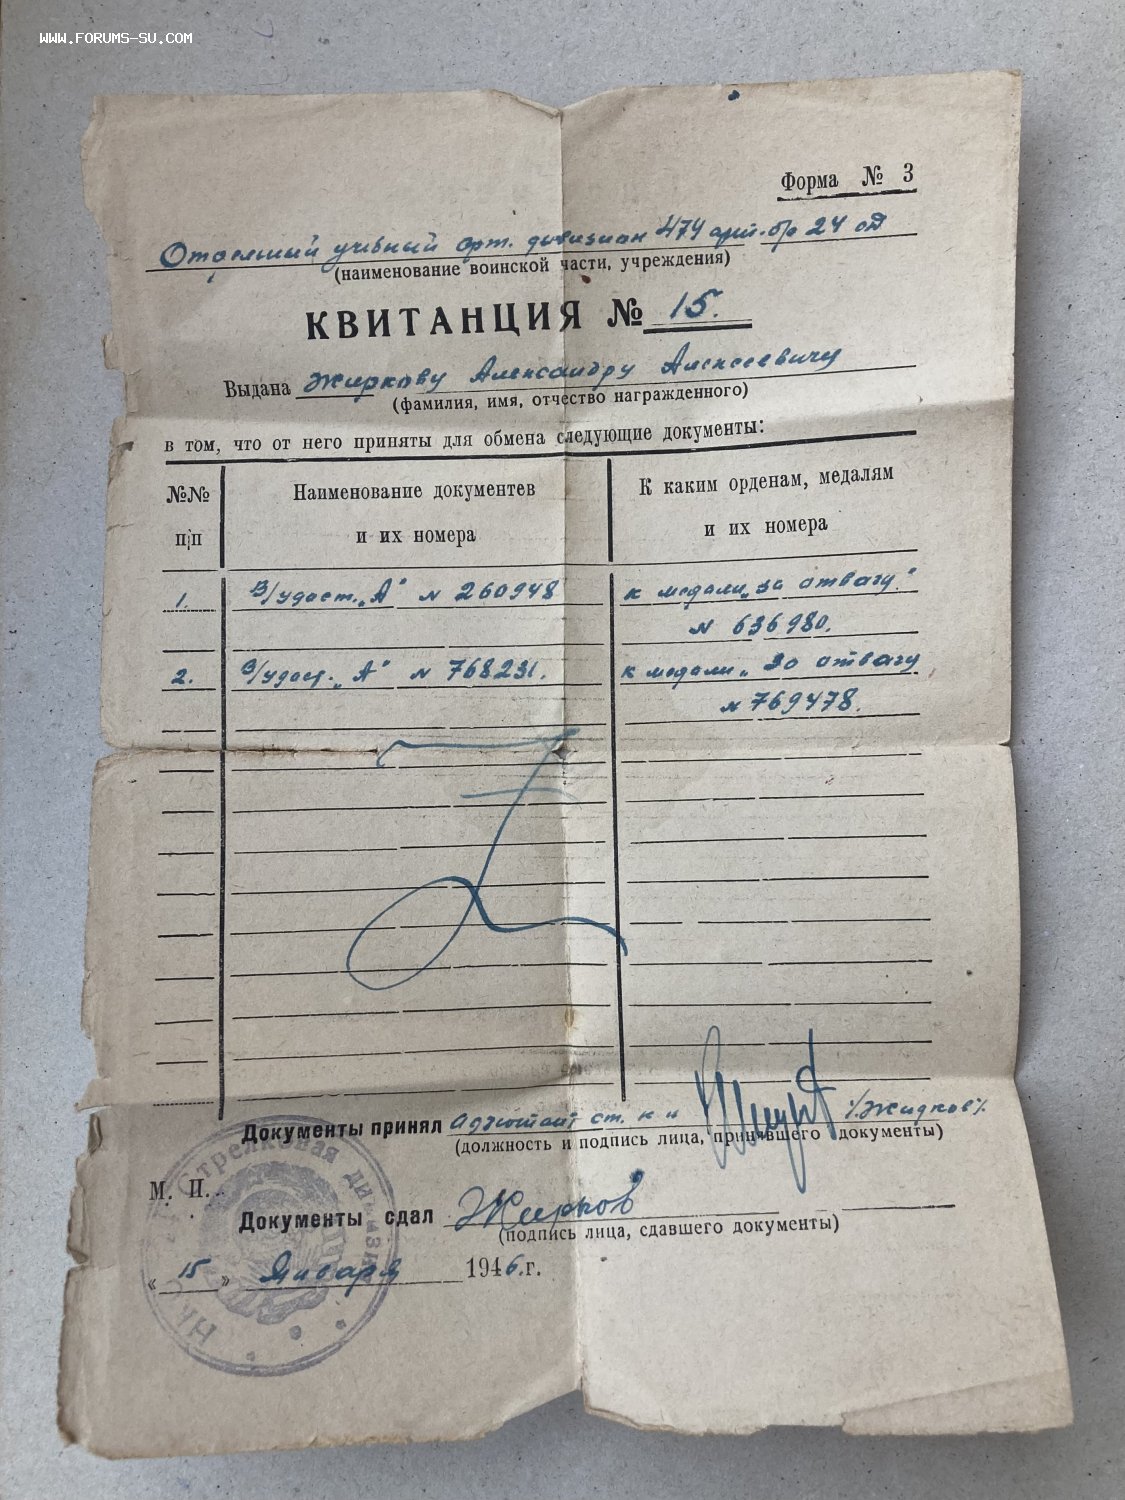 WWW.FORUMS-SU.COM
Форма № 3
Отдельный учебный арт. дивизион 474 арт. б/р 24 сД
(наименование воинской части, учреждения)
КВИТАНЦИЯ № 15.
Выдана Жиркову Александру Алексеевичу
(фамилия, имя, отчество награжденного)
в том, что от него приняты для обмена следующие документы:
№№ п/п
Наименование документев и их номера
К каким орденам, медалям и их номера
1. В/удост. „А" N 260948 к медали „за отвагу."
N 636980.
2. В/удост. „А" N 768231. к медали „За отвагу
N 769478.
Документы принял адъютант ст. к-н /Жидков/
(должность и подпись лица, принявшего документы)
М. П.
Стрелковая дивизия
НКО
Документы сдал Жирков
(подпись лица, сдавшего документы)
« 15 » Января 1946.г.